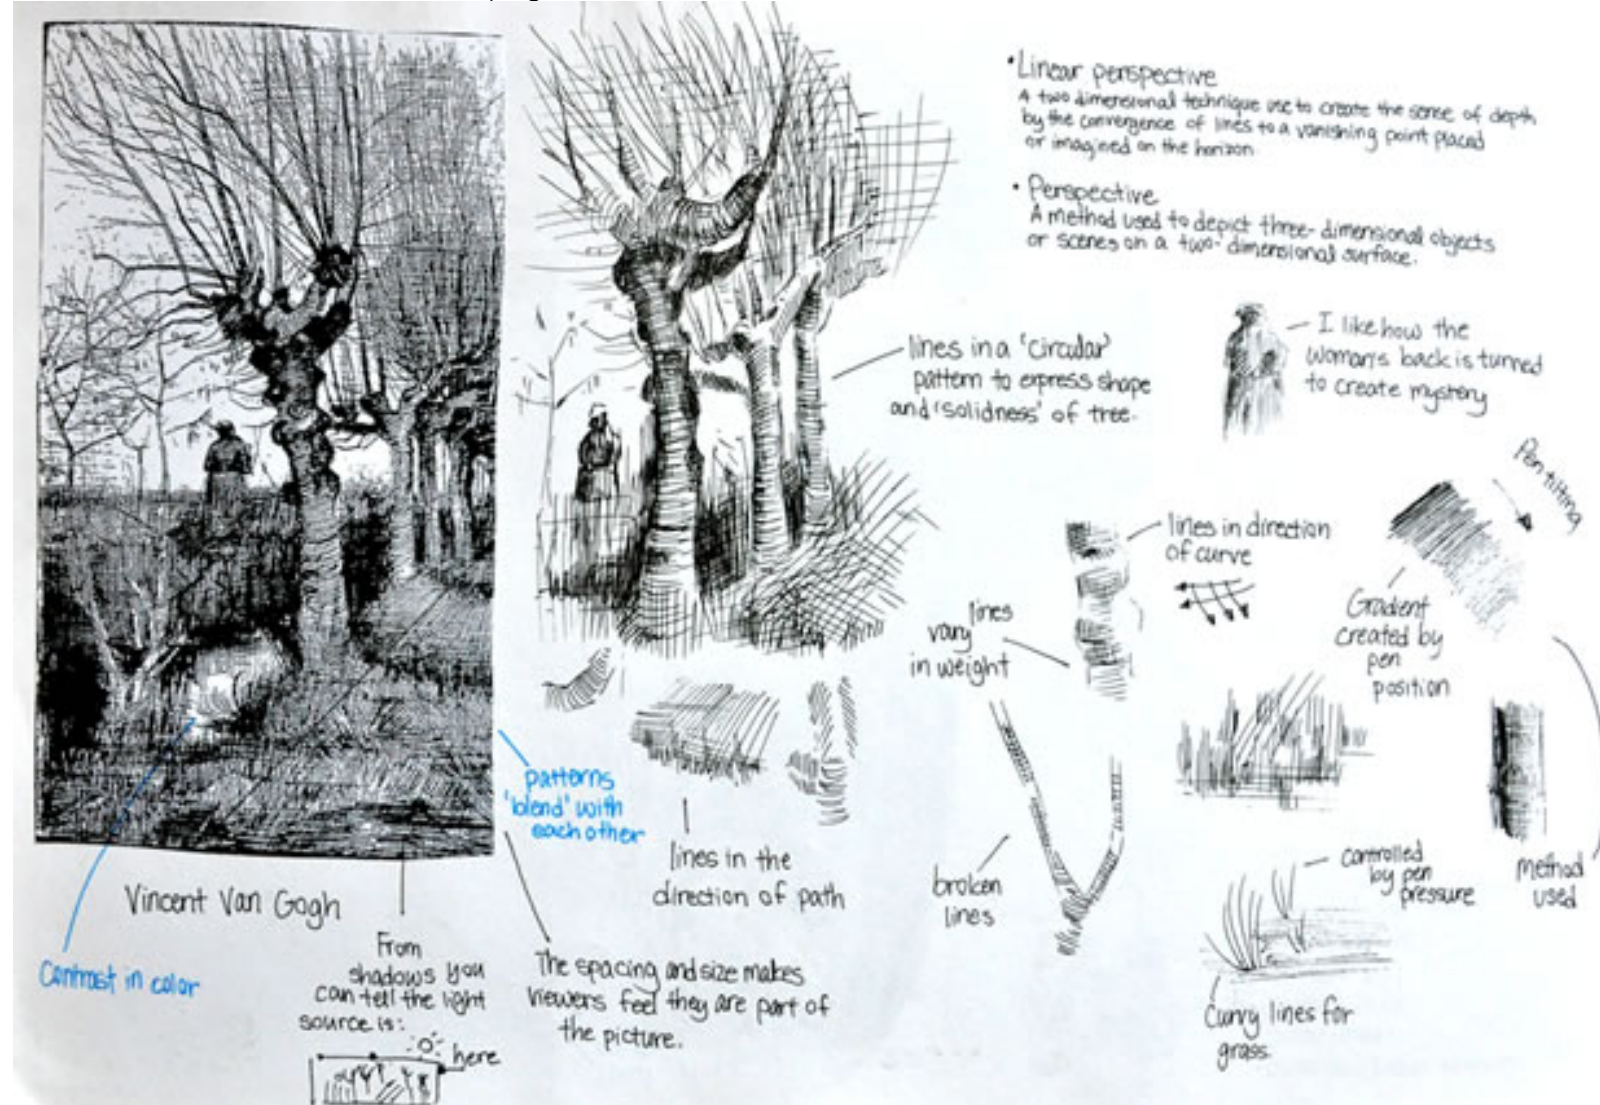 •Linear perspective
A two dimensional technique use to create the sense of depth
by the convergence of lines to a vanishing point placed
or imagined on the horizon
• Perspective
A method used to depict three-dimensional objects
or scenes on a two-dimensional surface.
I like how the
woman's back is turned
to create mystery
lines in a 'circular'
pattern to express shape
and 'solidness' of tree.
Pen tilting
lines in direction
of curve
Gradient
created by
pen
position
lines
vary
in weight
patterns
'blend' with
each other
lines in the
direction of path
broken
lines
controlled
by pen
pressure
Method
used
Vincent Van Gogh
Contrast in color
From
shadows you
can tell the light
source is:
here
The spacing and size makes
viewers feel they are part of
the picture.
Curvy lines for
grass.